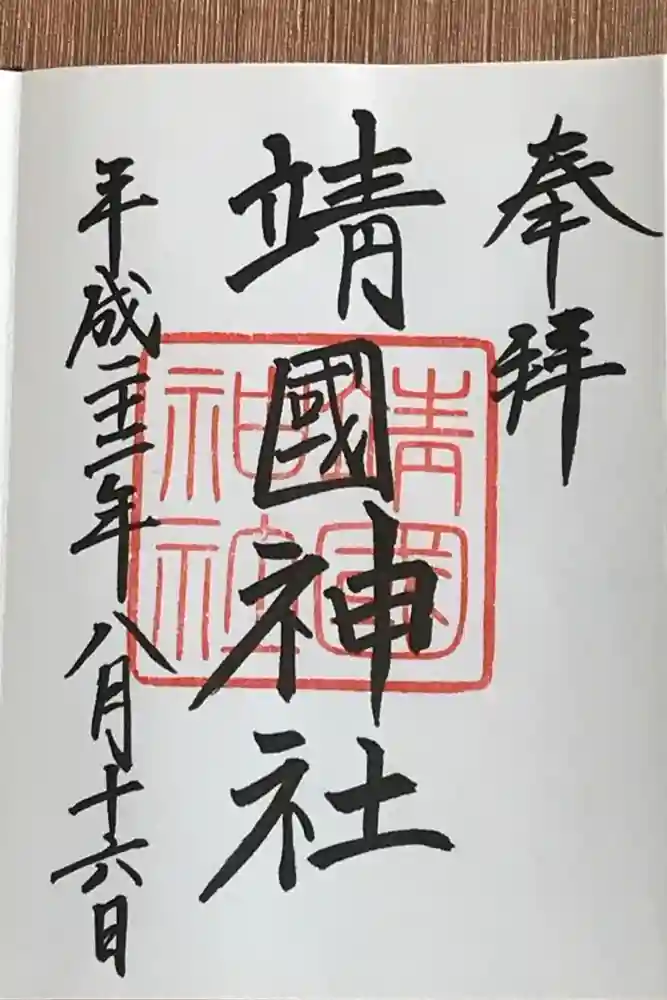 奉拝
靖國神社
平成二十二年八月十六日
靖國
神社